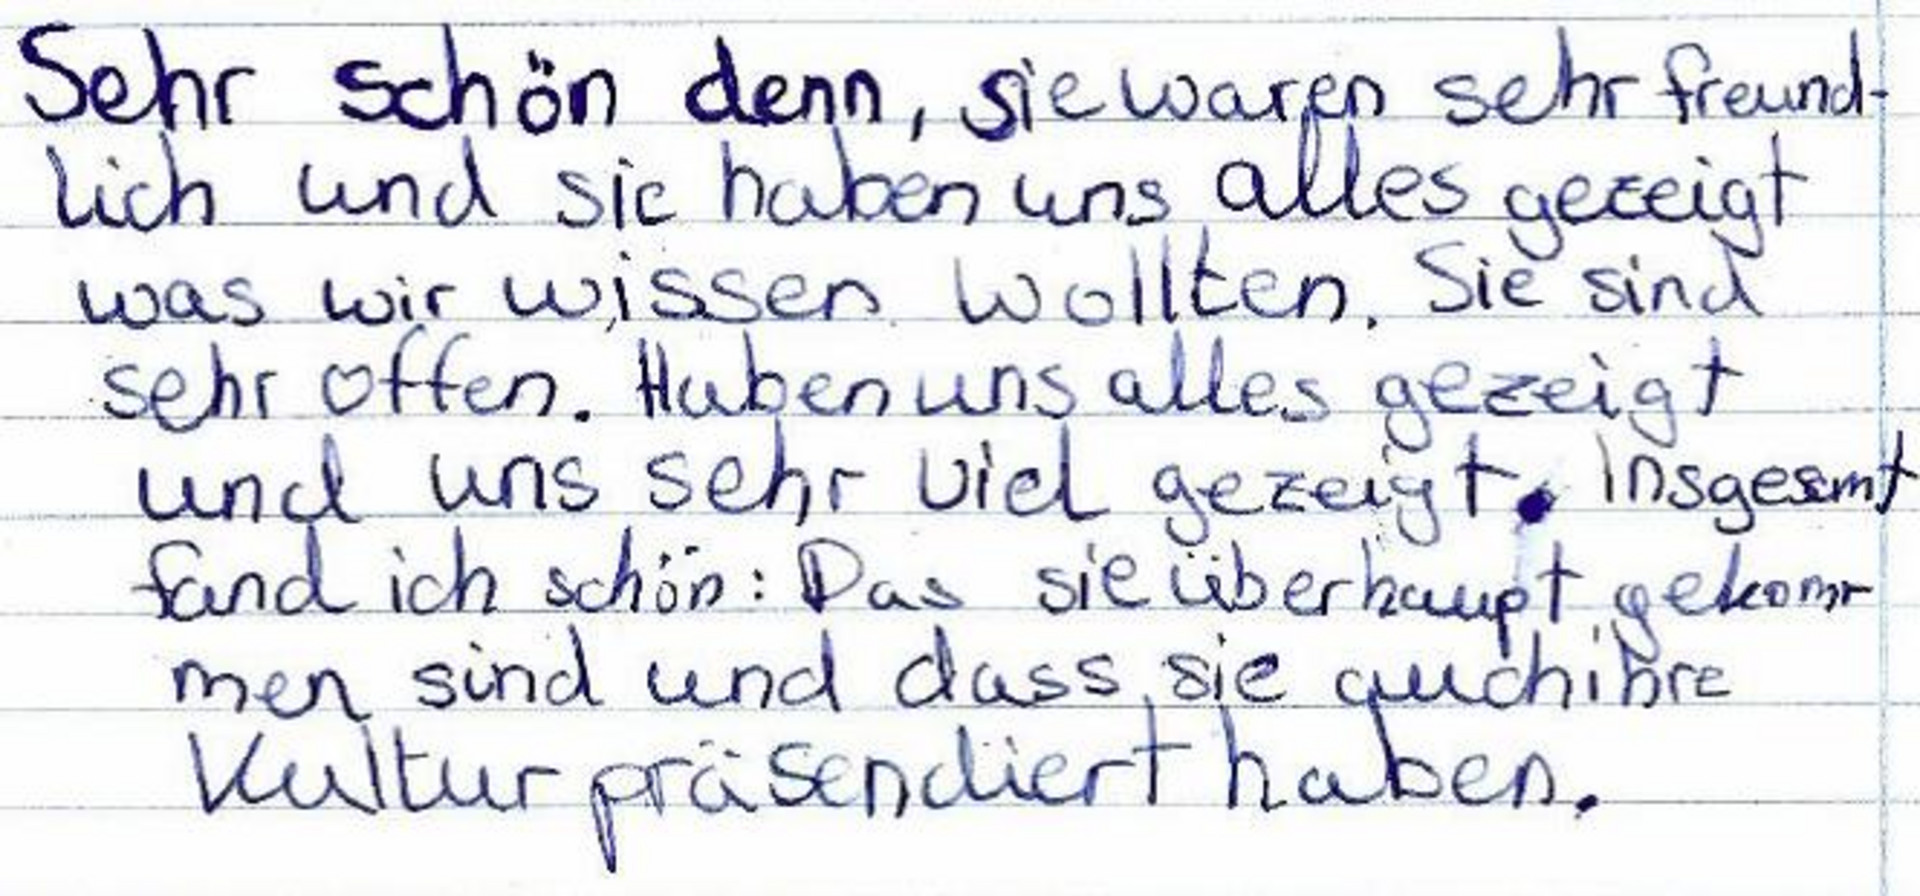 Sehr schön denn, sie waren sehr freund-
lich und sie haben uns alles gezeigt
was wir wissen wollten. Sie sind
sehr offen. Haben uns alles gezeigt
und uns sehr viel gezeigt. Insgesamt
fand ich schön: Das sie überhaupt gekom-
men sind und dass sie auch ihre
Kultur präsendiert haben.